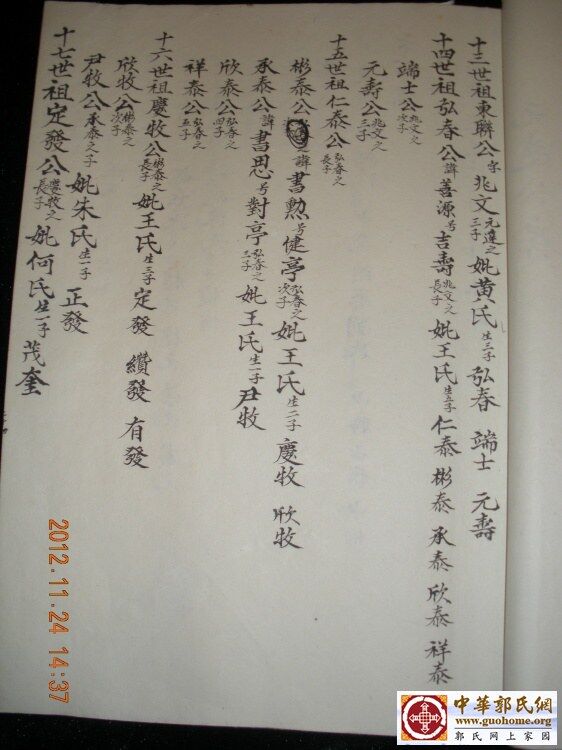 十三世祖東聯公字兆文元達之三子妣黄氏生三子弘春 端士 元壽
十四世祖弘春公諱善源号吉壽兆文之長子妣王氏生五子仁泰 彬泰 承泰 欣泰 祥泰
端士公兆文之次子
元壽公兆文之三子
十五世祖仁泰公弘春之長子
彬泰公諱書勲号健亭弘春之次子妣王氏生二子慶牧 欣牧
承泰公諱書思号對亭弘春之三子妣王氏生一子尹牧
欣泰公弘春之四子
祥泰公弘春之五子
十六世祖慶牧公彬泰之長子妣王氏生三子定發 纘發 有發
欣牧公彬泰之次子
尹牧公承泰之子妣朱氏生一子正發
十七世祖定發公慶牧之長子妣何氏生一子茂奎
2012.11.24 14:37
中華郭氏網
www.guohome.org
郭氏网上家园